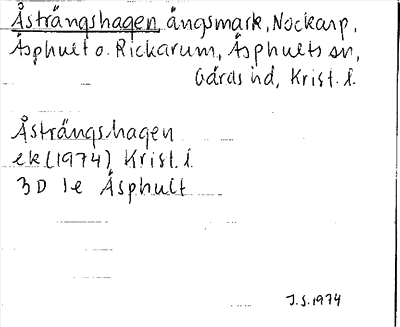 Åsträngshagen, ängsmark, Nockarp,
Äsphult o. Rickarum, Äsphults sn,
Gärds hd, Krist. l.
Åsträngshagen
ek (1974) Krist. l.
3D 1e Äsphult
J.S. 1974